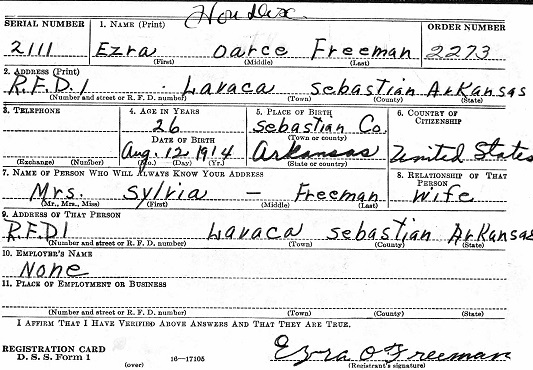 SERIAL NUMBER 1. NAME (Print) ORDER NUMBER
2111 Ezra Oarce Freeman 2273
(First) (Middle) (Last)
2. ADDRESS (Print)
R.F.D.1 Lavaca Sebastian Arkansas
(Number and street or R. F. D. number) (Town) (County) (State)
3. TELEPHONE 4. AGE IN YEARS 5. PLACE OF BIRTH 6. COUNTRY OF CITIZENSHIP
26 Sebastian Co.
(Town or county)
DATE OF BIRTH
Aug. 12 1914 Arkansas United States
(Exchange) (Number) (Mo.) (Day) (Yr.) (State or country)
7. NAME OF PERSON WHO WILL ALWAYS KNOW YOUR ADDRESS 8. RELATIONSHIP OF THAT PERSON
Mrs. Sylvia — Freeman Wife
(Mr., Mrs., Miss) (First) (Middle) (Last)
9. ADDRESS OF THAT PERSON
R.F.D1 Lavaca Sebastian Arkansas
(Number and street or R. F. D. number) (Town) (County) (State)
10. EMPLOYER'S NAME
None
11. PLACE OF EMPLOYMENT OR BUSINESS
(Number and street or R. F. D. number) (Town) (County) (State)
I AFFIRM THAT I HAVE VERIFIED ABOVE ANSWERS AND THAT THEY ARE TRUE.
REGISTRATION CARD
D. S. S. Form 1 16—17105 Ezra O Freeman
(over) (Registrant's signature)